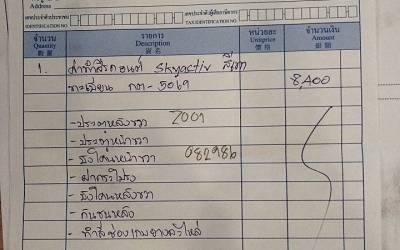 Address
เลขประจำตัวประชาชน
เลขประจำตัวผู้เสียภาษีอากร
TAX IDENTIFICATION NO.
จำนวน รายการ หน่วยละ จำนวนเงิน
Quantity Description Unitprice Amount
數量 貨名 價格 銀額
1. ค่าทำสีรถยนต์ Skyactiv สีเทา
ทะเบียน กก - 5069 8,400
- ประตูหลังขวา 2001
- ประตูหน้าขวา
- บังโคลนหน้าขวา 082986
- ฝากระโปรง
- บังโคลนหลังขวา
- กันชนหลัง